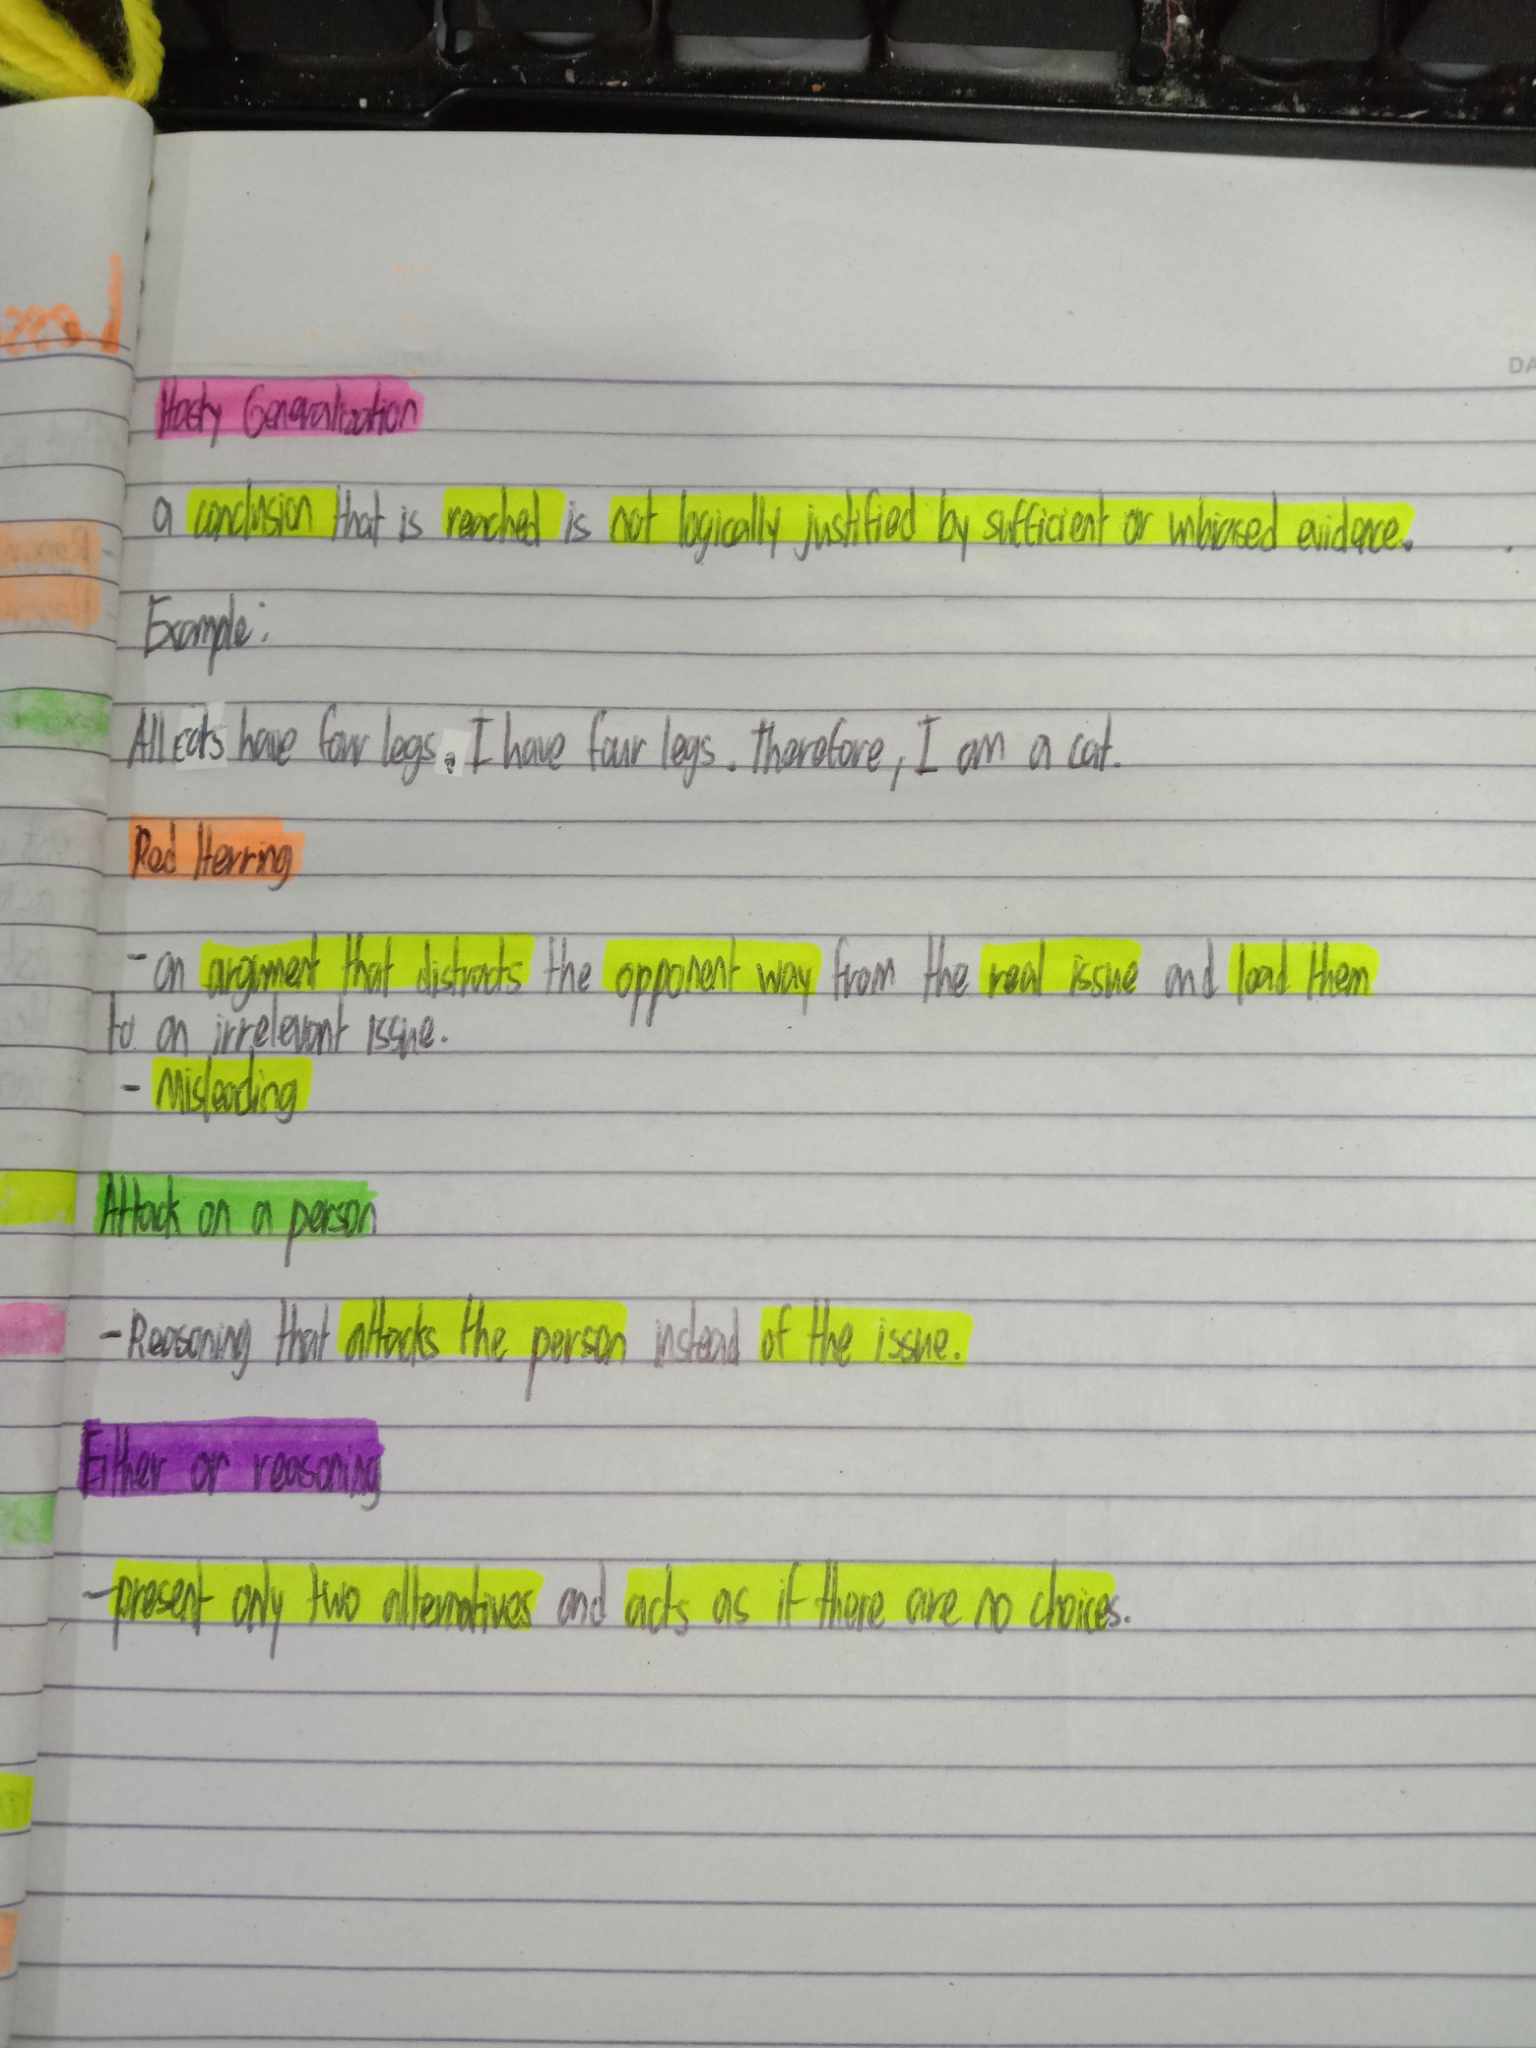 DA
Hasty Generalization
a conclusion that is reached is not logically justified by sufficient or unbiased evidence.
Example:
All cats have four legs. I have four legs. Therefore, I am a cat.
Red Herring
- an argument that distracts the opponent way from the real issue and lead them
to an irrelevant issue.
- Misleading
Attack on a person
- Reasoning that attacks the person instead of the issue.
Either or reasoning
- present only two alternatives and acts as if there are no choices.